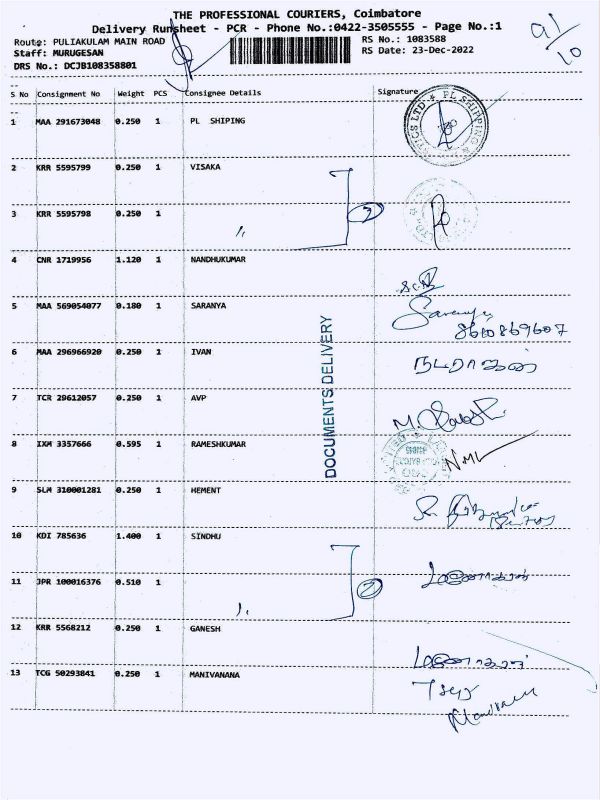 THE PROFESSIONAL COURIERS, Coimbatore
Delivery Runsheet - PCR - Phone No.:0422-3505555 - Page No.:1
Route: PULIAKULAM MAIN ROAD RS No.: 1083588
Staff: MURUGESAN RS Date: 23-Dec-2022
DRS No.: DCJB108358801
91/10
S No Consignment No Weight PCS Consignee Details Signature
1 MAA 291673048 0.250 1 PL SHIPING
2 KRR 5595799 0.250 1 VISAKA
3 KRR 5595798 0.250 1 ,, 2
4 CNR 1719956 1.120 1 NANDHUKUMAR
5 MAA 569054077 0.180 1 SARANYA Saranya
8610869607
6 MAA 296966920 0.250 1 IVAN நடராஜன்
7 TCR 29612057 0.250 1 AVP
8 IXM 3357666 0.595 1 RAMESHKUMAR
9 SLM 310001281 0.250 1 HEMENT
10 KDI 785636 1.400 1 SINDHU
11 JPR 100016376 0.510 1 ,, 2
12 KRR 5568212 0.250 1 GANESH
13 TCG 50293841 0.250 1 MANIVANANA
DOCUMENTS DELIVERY